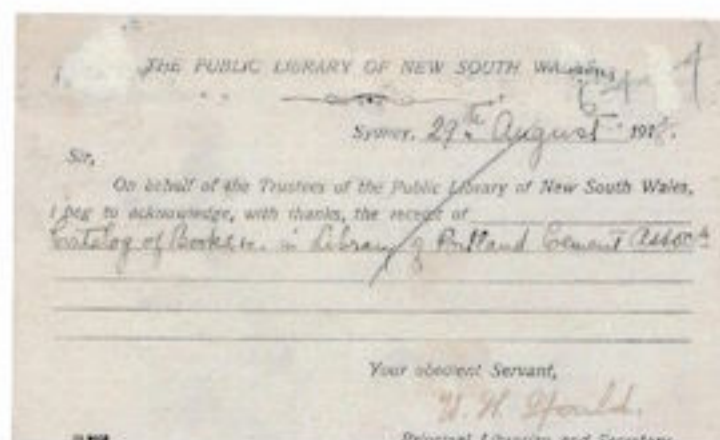 THE PUBLIC LIBRARY OF NEW SOUTH WALES,
Sydney, 29th August 191
Sir,
On behalf of the Trustees of the Public Library of New South Wales,
I beg to acknowledge, with thanks, the receipt of
Catalog of Books in Library of Portland Cement Assoc
Your obedient Servant,
Principal Librarian and Secretary